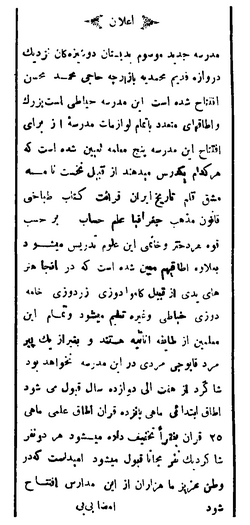 اعلان
مدرسه جدید موسوم بدبستان دوشیزه‌گان نزدیک
دروازه قدیم محمدیه بازارچه حاجی محمد محسن
افتتاح شده است این مدرسه حیاطی است بزرگ
و اطاقهای متعدد باتمام لوازمات مدرسهٔ از برای
افتتاح این مدرسه پنج معلمه تعیین شده است که
هرکدام یکدرس میدهند از قبیل نخست نامه
مشق قلم تاریخ ایران قرائت کتاب طباخی
قانون مذهب جغرافیا علم حساب برحسب
قوه هر دختر و خانمی این علوم تدریس میشود
بعلاوه اطاقیهم معین شده است که در آنجا هنر
های یدی از قبیل کاموادوزی زردوزی خامه
دوزی خیاطی وغیره تعلیم میشود و تمام این
معلمین از طایفه اناثیه هستند و بغیر از یک پیر
مرد قابوچی مردی در این مدرسه نخواهد بود
شاگرد از هفت الی دوازده سال قبول می شود
اطاق ابتدائی ماهی پانزده قران اطاق علمی ماهی
۲۵ قران بفقرأ تخفیف داده میشود هر دو نفر
شاگرد یک نفر مجانا قبول میشود امید است که در
وطن عزیز ما هزاران از این مدارس افتتاح
شود امضا بی‌بی